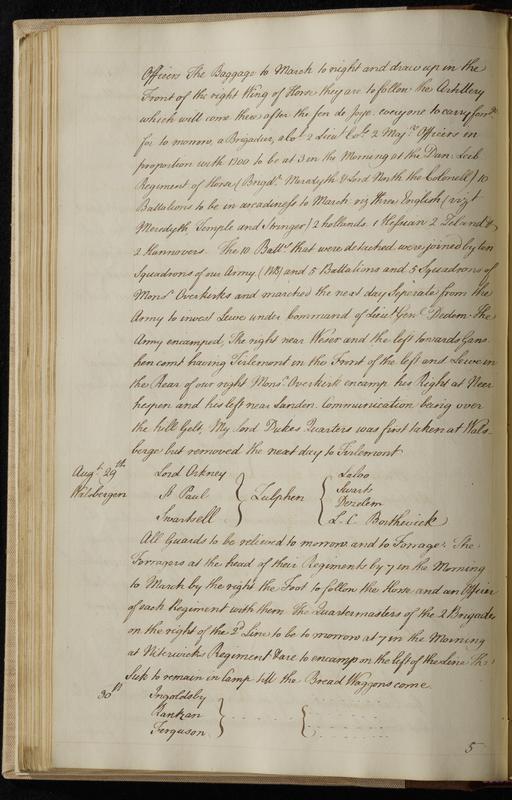 Officers The Baggage to March to night and draw up in the
Front of the right Wing of Horse they are to follow the Artillery
which will come there after the feu de Joye. everyone to carry form
for to morrow, a Brigadier, 2 Lieut Cols 2 Majrs Officers in
proportion with 1200 to be at 3 in the Morning at the Dan: Leib
Regiment of Horse (Brigdr Meredyth & Lord North the Colonells) 10
Battalions to be in areadiness to March viz three English (vizt
Meredyth Temple and Stringer) 2 hollands. 1 Hessian 2
2 Hannovers. The 10 Batts that were detached were joined by ten
Squadrons of our Army and 5 Battalions and 5 Squadrons of
Monsr Overkirks and marched the next day Seperate from the
Army to invest Lewe under Command of Lieut Genl Dedem. The
Army encamped, The right near Weser and the left towards Gans-
hen comt having Tirlemont in the Front of the left and Lewe in
the Rear of our right Monsr Overkirk encamp his Right at Neer
hespen and his left near Landen. Communication being over
the hill Gels, My Lord Dukes Quarters was first taken at Wals-
berge but removed the next day to Tirlemont
Augt 29th Lord Orkney
Walsbergen St Paul } Zulphen { Swarts
Swartsell Dendem
L. C. Borthwick
All Guards to be relieved to morrow and to Forrage. The
Forragers at the head of their Regiments by 7 in the Morning
to March by the right the Foot to follow the Horse and an Officer
of each Regiment with them The Quartermasters of the 2 Brigades
on the right of the 2d Line to be to morrow at 7 in the Morning
at Regiment & are to encamp on the left of the Line The
Sick to remain in Camp till the Bread Waggons come
30th Ingoldsby
Rankzan } . . . . . . {
Ferguson
5